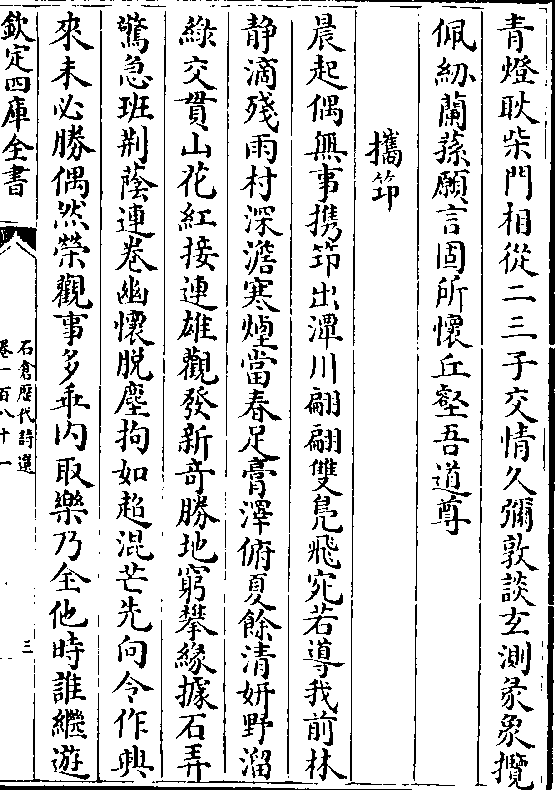 青燈耿柴門相從二三子交情久彌敦談玄測彖象攬
佩紉蘭蓀願言固所懷丘壑吾道尊
攜筇
晨起偶無事携筇出潭川翩翩雙鳧飛宛若導我前林
静滴殘雨村深澹寒煙當春足膏澤俯夏餘清妍野溜
綠交貫山花紅接連雄觀發新奇勝地窮攀緣據石弄
驚急班荆蔭連卷幽懷脱塵拘如超混芒先向令作興
來未必勝偶然榮觀事多乖内取樂乃全他時誰繼遊
欽定四庫全書
石倉歷代詩選
卷一百八十一
三